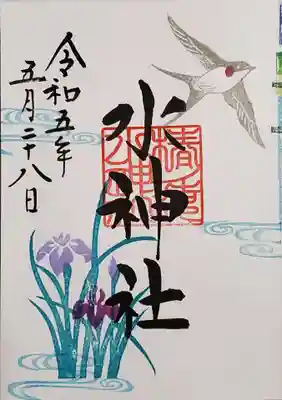 水神社
令和五年
五月二十八日